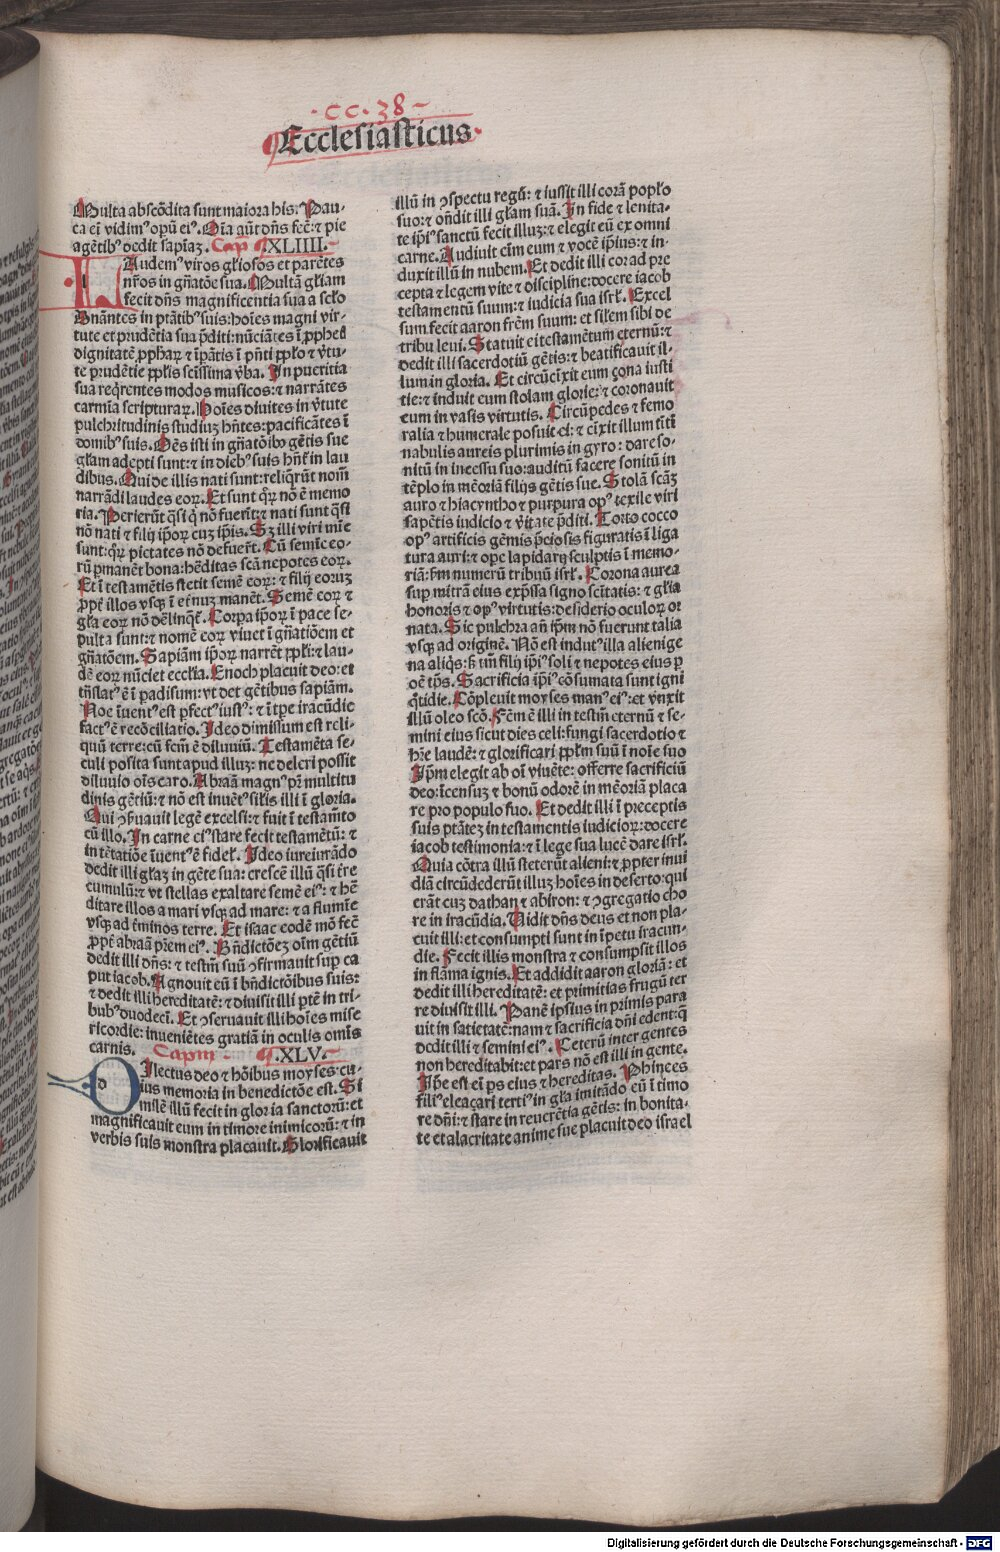 ·CC·38~
Ecclesiasticus·
Multa abscōdita sunt maiora his. Pau-
ca eī vidimꝰ opū eiꝰ. Oīa aūt dn̄s fec̄: ⁊ pie
agētibꝰ dedit sapīaꝫ. Cap XLIIII.
LAudemꝰ viros gl̄iosos et parētes
nr̄os in gn̄atōe sua. Multā gl̄iam
fecit dn̄s magnificentia sua a sclo
Dn̄antes in ptātibꝰ suis: hoīes magni vir-
tute et prudētia sua p̄diti: nūciātes ī ꝓphetis
dignitatē ꝓphaꝝ ⁊ īpātis ī pn̄ti ppl̄o ⁊ v̄tu-
te prudētie ppl̄is scīssima v̄ba. In pueritia
sua reqͥrentes modos musicos: ⁊ narrātes
carmīa scripturaꝝ. Hoīes diuites in v̄tute
pulchritudinis studiuꝫ hn̄tes: pacificātes ī
domibꝰ suis. Oēs isti in gn̄atōibꝰ gētis sue
gl̄am adepti sunt: ⁊ in diebꝰ suis hn̄t̄ in lau
dibus. Qui de illis nati sunt: reliqͬūt nom̄
narrādi laudes eoꝝ. Et sunt qͦꝝ nō ē memo
ria. Perierūt qͣsi qͥ nō fuerīt: ⁊ nati sunt qͣsi
nō nati ⁊ filij ipōꝝ cuꝫ ip̄is. Sꝫ illi viri mīe
sunt: qͦꝝ pietates nō defuer̄t. Cū semīe eo-
rū ꝑmanēt bona: hēditas scā nepotes eoꝝ.
Et ī testamētis stetit semē eoꝝ: ⁊ filij eoruꝫ
ꝓpt̄ illos vsqꝫ ī et̄nuꝫ manēt. Semē eoꝝ ⁊
gl̄a eoꝝ nō dēlinqͭ. Corpa ipōꝝ ī pace se-
pulta sunt: ⁊ nomē eoꝝ viuet ī gn̄atiōem et
gn̄atōem. Sapiām ipōꝝ narrēt ppl̄i: ⁊ lau-
dē eoꝝ nūciet eccl̄ia. Enoch placuit deo: et
trāslatꝰ ē ī padisum: vt det gētibus sapiām.
Noe īuentꝰ est ꝑfectꝰ iustꝰ: ⁊ ī tp̄e iracūdie
factꝰ ē recōciliatio. Ideo dimissum est reli-
quū terre: cū fcm̄ ē diluuiū. Testamēta se-
culi posita sunt apud illuꝫ: ne deleri possit
diluuio oīs caro. Abraā magnꝰ pr̄ multitu
dinis gētiū: ⁊ nō est inuētꝰ sil̄is illi ī gloria.
Qui ↄseruauit legē excelsi: ⁊ fuit ī testam̄to
cū illo. In carne eiꝰ stare fecit testamētū: ⁊
in tētatiōe īuentꝰ ē fidel̄. Ideo iureiurādo
dedit illi gl̄aꝫ in gēte sua: crescē illū qͣsi tr̄e
cumulū: ⁊ vt stellas exaltare semē eiꝰ: ⁊ hē
ditare illos a mari vsqꝫ ad mare: ⁊ a flumīe
vsqꝫ ad t̄minos terre. Et isaac eodē mō fec̄
ꝓpt̄ abraā pr̄em eiꝰ. Bn̄dictōeꝫ oīm gētiū
dedit illi dn̄s: ⁊ testm̄ suū ↄfirmauit suꝑ ca
put iacob. Agnouit eū ī bn̄dictōibus suis:
⁊ dedit illi hereditatē: ⁊ diuisit illi ptē in tri-
bubꝰ duodecī. Et ↄseruauit illi hoīes mise
ricordie: inueniētes gratiā in oculis omīs
carnis. Capm XLV.
DIlectus deo ⁊ hōibus moyses: cu-
ius memoria in benedictōe est. Si
milē illū fecit in gloria sanctorū: et
magnificauit eum in timore inimicorū: ⁊ in
verbis suis monstra placauit. Glorificauit
illū in ↄspectu regū: ⁊ iussit illi corā popl̄o
suo: ⁊ on̄dit illi gl̄am suā. In fide ⁊ lenita-
te ip̄iꝰ sanctū fecit illuꝫ: ⁊ elegit eū ex omni
carne. Audiuit eīm eum ⁊ vocē ip̄ius: ⁊ in-
duxit illū in nubem. Et dedit illi cor ad pre
cepta ⁊ legem vite ⁊ discipline: docere iacob
testamentū suum: ⁊ iudicia sua isrl̄. Excel
sum fecit aaron fr̄em suum: et sil̄em sibi de
tribu leui. Statuit ei testamētum eternū: ⁊
dedit illi sacerdotiū gētis: ⁊ beatificauit il-
lum in gloria. Et circūcīxit eum çona iusti
tie: ⁊ induit eum stolam glorie: ⁊ coronauit
eum in vasis virtutis. Circūpedes ⁊ femo
ralia ⁊ humerale posuit ei: ⁊ cīxit illum tītī
nabulis aureis plurimis in gyro: dare so-
nitū in incessu suo: auditū facere sonitū in
tēplo in mēoriā filijs gētis sue. Stolā scāꝫ
auro ⁊ hiacyntho ⁊ purpura opꝰ texile viri
sapētis iudicio ⁊ v̄itate p̄diti. Torto cocco
opꝰ artificis gēmis p̄ciosis figuratis ī liga
tura auri: ⁊ ope lapidarij sculptis ī memo-
riā: ẜm numerū tribuū isrl̄. Corona aurea
suꝑ mitrā eius exp̄ssa signo scītatis: ⁊ gl̄ia
honoris ⁊ opꝰ virtutis: desiderio oculoꝝ or
nata. Sic pulchra an̄ ip̄m nō fuerunt talia
vsqꝫ ad originē. Nō est indutꝰ illa alienige
na aliqͥs: ẜꝫ tm̄ filij ip̄iꝰ soli ⁊ nepotes eius ꝑ
oē tp̄s. Sacrificia ip̄iꝰ cōsumata sunt igni
qͦtidie. Cōpleuit moyses manꝰ eiꝰ: et vnxit
illū oleo scō. Fcm̄ ē illi in testm̄ eternū ⁊ se-
mini eius sicut dies celi: fungi sacerdotio ⁊
hr̄e laudē: ⁊ glorificari ppl̄m suū ī noīe suo
Ip̄m elegit ab oī viuēte: offerre sacrificiū
deo: īcensuꝫ ⁊ bonū odorē in mēoriā placa
re pro populo suo. Et dedit illi ī preceptis
suis ptāteꝫ in testamentis iudicioꝝ: docere
iacob testimonia: ⁊ ī lege sua lucē dare isrl̄.
Quia cōtra illū steterūt alieni: ⁊ ꝓpter inui
diā circūdederūt illuꝫ hoīes in deserto: qui
erāt cuꝫ dathan ⁊ abiron: ⁊ ↄgregatio cho
re in iracūdia. Vidit dn̄s deus et non pla-
cuit illi: et consumpti sunt in īpetu iracun-
die. Fecit illis monstra ⁊ consumpsit illos
in flāma ignis. Et addidit aaron gloriā: et
dedit illi hereditatē: et primitias frugū ter
re diuisit illi. Panē ipsius in primis para
uit in satietatē: nam ⁊ sacrificia dn̄i edent: q̄
dedit illi ⁊ semini eiꝰ. Ceterū inter gentes
non hereditabit: et pars nō est illi in gente.
Ip̄e est eī ps eius ⁊ hereditas. Phinees
filiꝰ eleaçari tertiꝰ in gl̄a imitādo eū ī timo
re dn̄i: ⁊ stare in reuerētia gētis: in bonita-
te et alacritate anime sue placuit deo israel
Digitalisierung gefördert durch die Deutsche Forschungsgemeinschaft - DFG